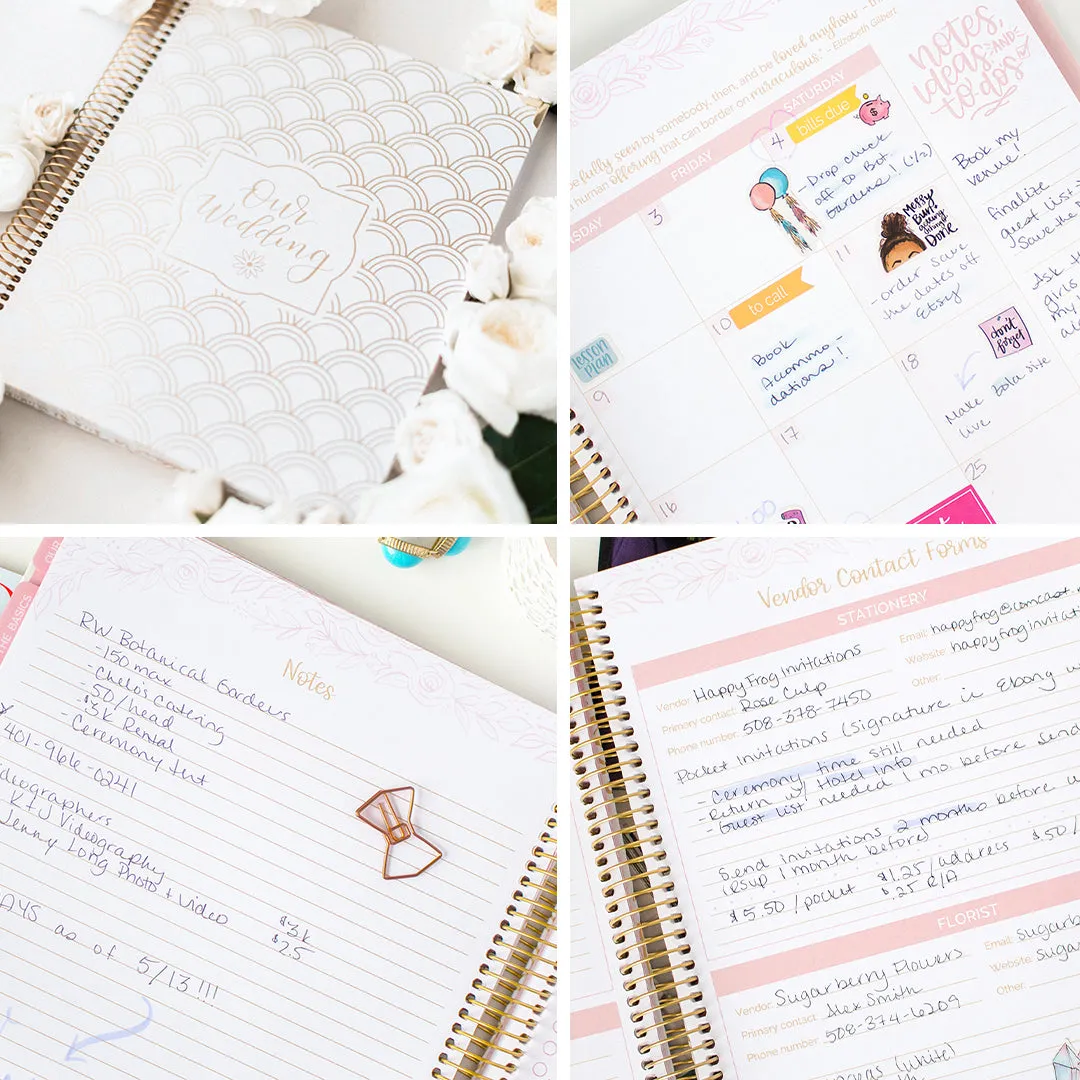 Our
Wedding
be fully seen by somebody, then, and be loved anyhow - th
human offering that can border on miraculous." - Elizabeth Gilbert
SDAY
FRIDAY
SATURDAY
notes,
ideas, AND
to do's
3
4
bills due
$
- Drop check
off to Bot.
Gardens! (1/2)
Book my
venue!
finalize
guest list
Save the
Ask th
girls
my
lesson
plan
9
10
to call
Book
Accommo-
dations!
11
Messy
Bun &
getting
things
Done
- order save
the dates off
Etsy
16
17
18
don't
forget
Make Bola site
live
25
OUR
THE BASICS
Notes
RW Botanical Gardens
- 150 max
- Chelo's Catering
- 50/head
$3k Rental
- Ceremony tent
401-966-0241
deographers
KTJ Videography
Jenny Long Photo + Video
$3k
$2.5
AYS
as of 5/13!!!
Vendor Contact Forms
STATIONERY
Vendor: Happy Frog Invitations
Email: happyfrog@comcast.
Primary contact: Rose Culp
Website: happyfroginvitati
Phone number: 508-378-7450
Other:
Pocket Invitations (signature in Ebony w
- Ceremony time still needed
- Return w/ Hotel Info
- Guest list needed 1 mo. before send
Send invitations 2 months before
(RSVP 1 month before)
$5.50/pocket $1.25/address $.50/
$.25 R/A
FLORIST
Vendor: Sugarberry Flowers
Email: sugarb
Primary contact: Alex Smith
Website: sugar
Phone number: 508-374-6209
Other:
(white)